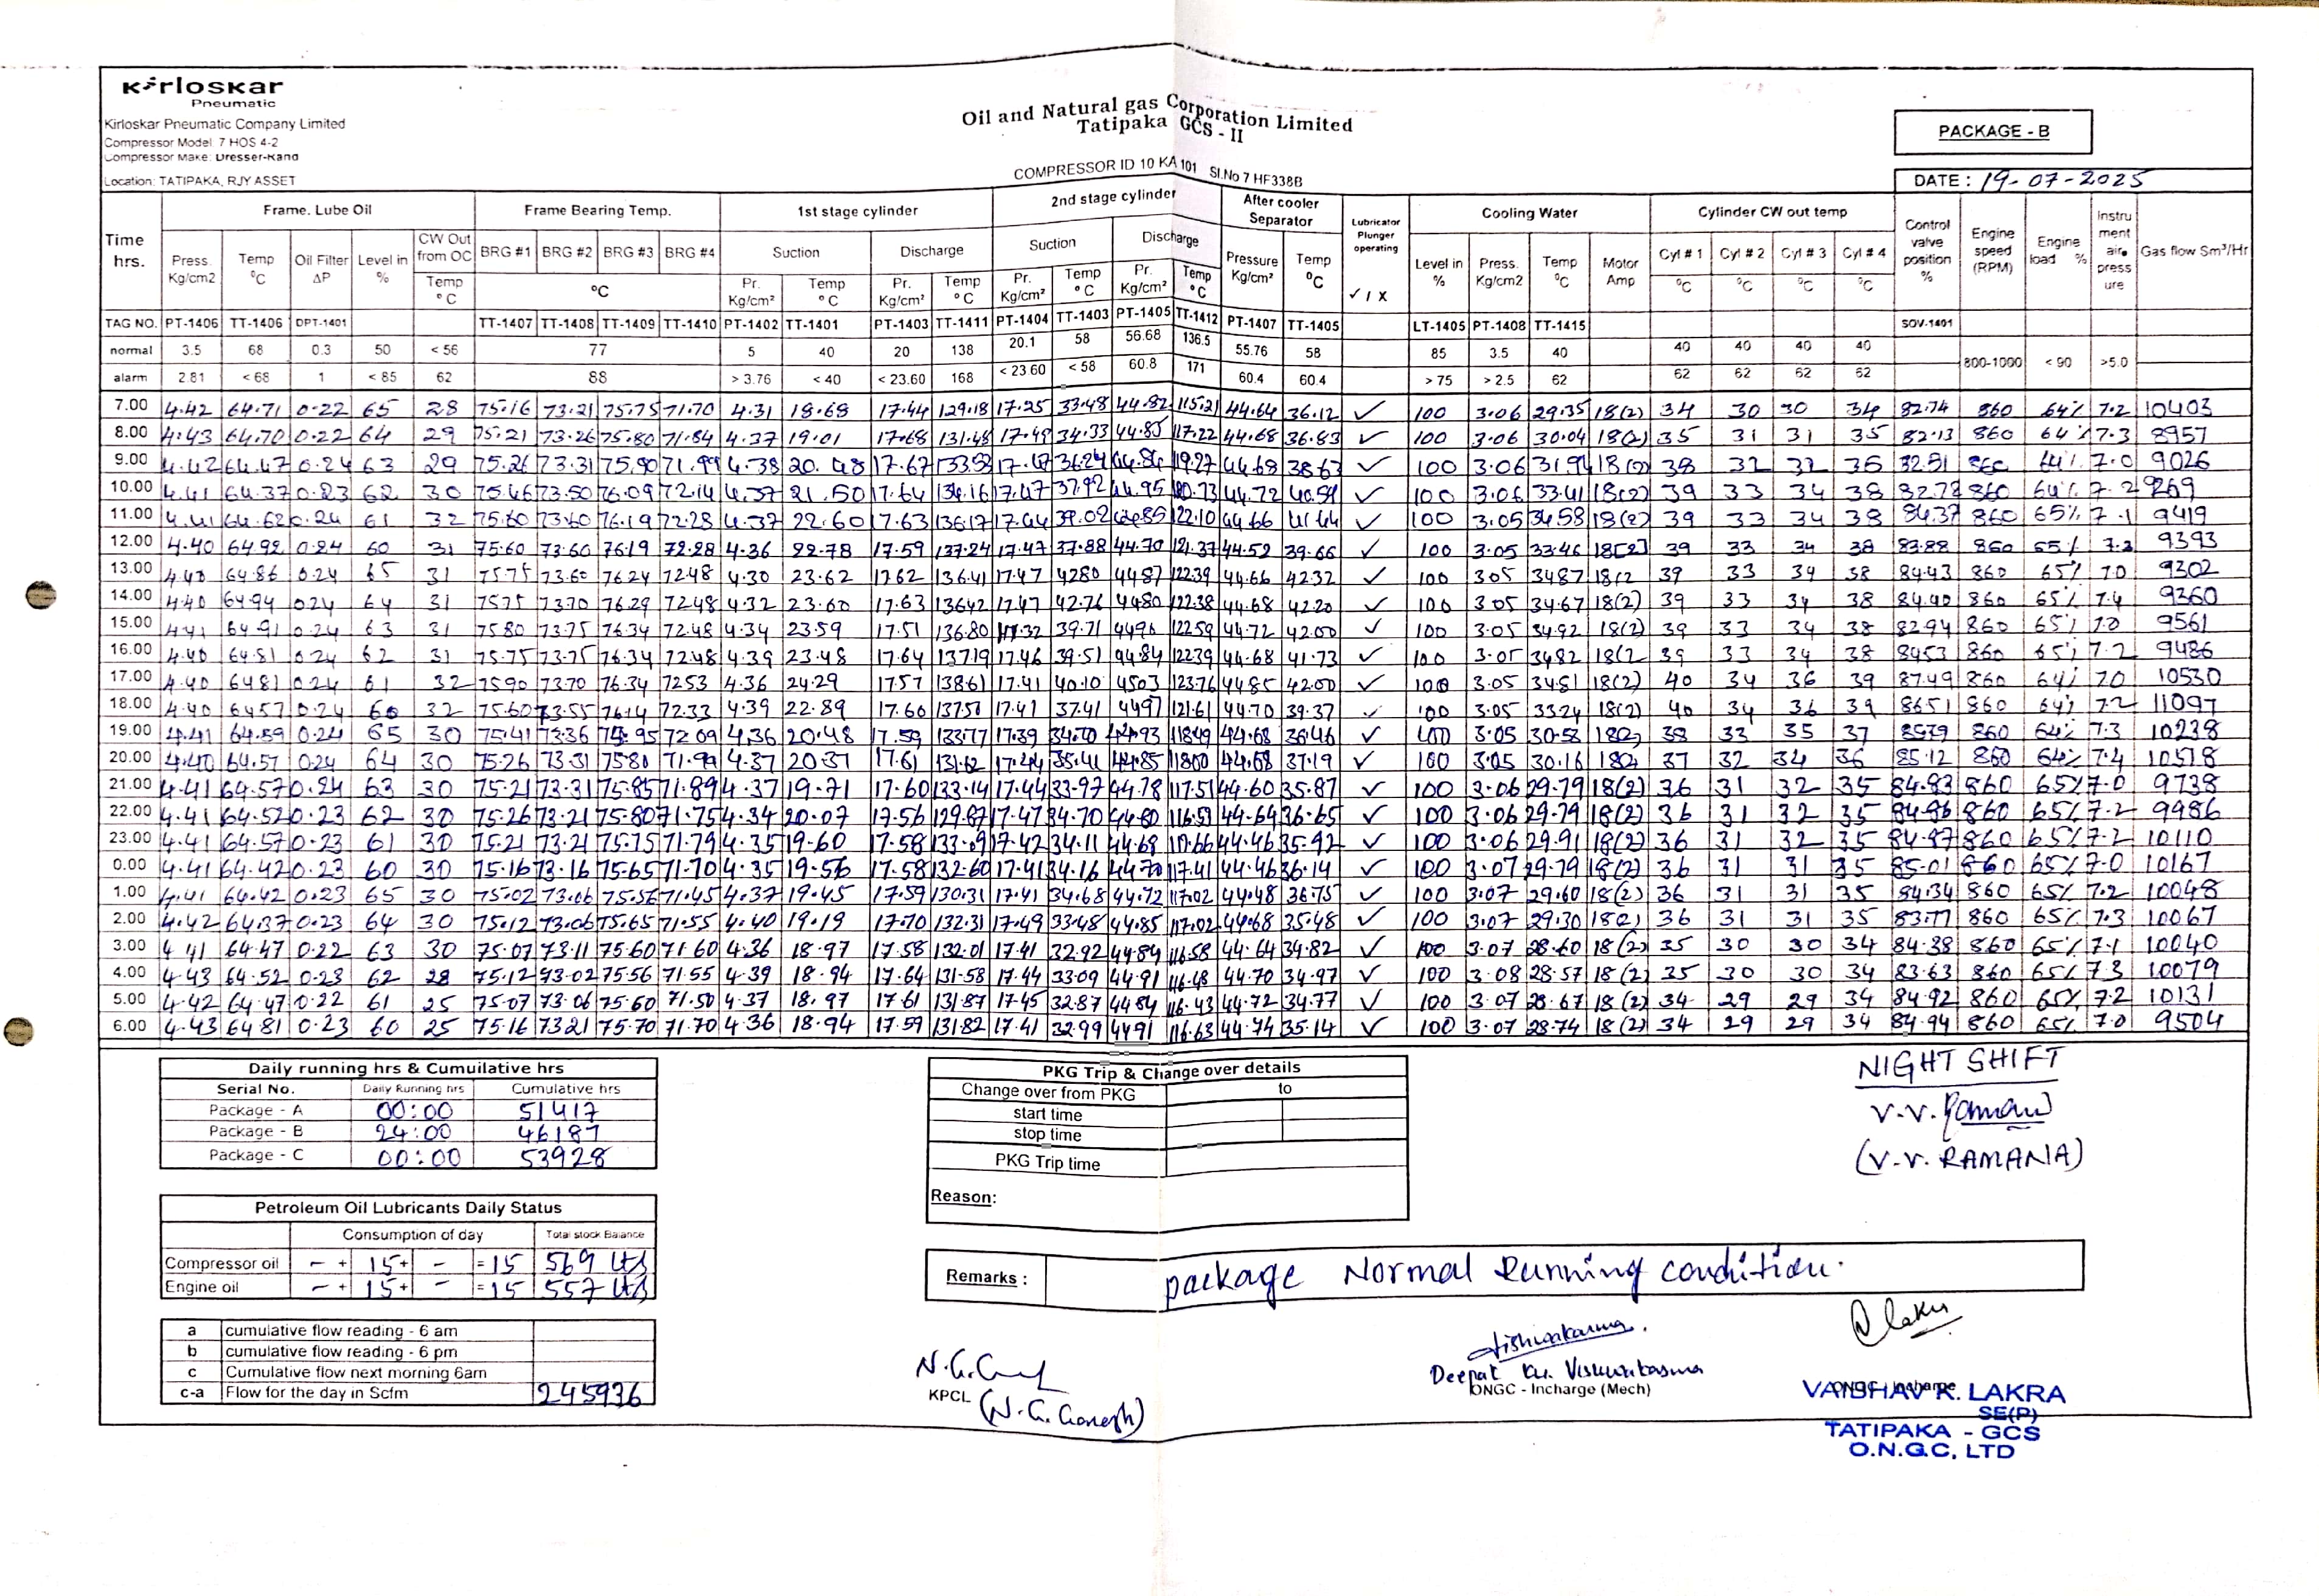 Kirloskar
Pneumatic
Kirloskar Pneumatic Company Limited
Compressor Model: 7 HOS 4-2
Compressor Make: Dresser-Rand
Location: TATIPAKA, RJY ASSET
Oil and Natural gas Corporation Limited
Tatipaka GCS - II
COMPRESSOR ID 10 KA 101 Sl.No 7 HF338B
PACKAGE - B
DATE : 19-07-2025
Time hrs. Frame. Lube Oil Frame Bearing Temp. 1st stage cylinder 2nd stage cylinder After cooler Separator Lubricator Plunger operating ✓ / X Cooling Water Cylinder CW out temp Control valve position % Engine speed (RPM) Engine load % Instru ment air press ure Gas flow Sm³/Hr
Press. Kg/cm2 Temp ºC Oil Filter ΔP Level in % CW Out from OC Temp º C BRG #1 BRG #2 BRG #3 BRG #4 ºC Suction Discharge Suction Discharge Pressure Kg/cm² Temp ºC Level in % Press. Kg/cm2 Temp ºC Motor Amp Cyl # 1 Cyl # 2 Cyl # 3 Cyl # 4
Pr. Kg/cm² Temp º C Pr. Kg/cm² Temp º C Pr. Kg/cm² Temp º C Pr. Kg/cm² Temp º C ºC ºC ºC ºC
TAG NO. PT-1406 TT-1406 DPT-1401 TT-1407 TT-1408 TT-1409 TT-1410 PT-1402 TT-1401 PT-1403 TT-1411 PT-1404 TT-1403 PT-1405 TT-1412 PT-1407 TT-1405 LT-1405 PT-1408 TT-1415 SOV-1401
normal 3.5 68 0.3 50 < 56 77 5 40 20 138 20.1 58 56.68 136.5 55.76 58 85 3.5 40 40 40 40 40 800-1000 < 90 >5.0
alarm 2.81 < 68 1 < 85 62 88 > 3.76 < 40 < 23.60 168 < 23.60 < 58 60.8 171 60.4 60.4 > 75 > 2.5 62 62 62 62 62
7.00 4.42 64.71 0.22 65 28 75.16 73.21 75.75 71.70 4.31 18.68 17.44 129.18 17.25 33.48 44.82 115.21 44.64 36.12 ✓ 100 3.06 29.35 18(2) 34 30 30 34 82.74 860 64% 7.2 10403
8.00 4.43 64.70 0.22 64 29 75.21 73.26 75.80 71.84 4.37 19.01 17.68 131.48 17.49 34.33 44.85 117.22 44.68 36.83 ✓ 100 3.06 30.04 18(2) 35 31 31 35 82.13 860 64% 7.3 8957
9.00 4.42 64.47 0.24 63 29 75.26 73.31 75.90 71.99 4.38 20.48 17.67 133.52 17.47 36.24 44.84 119.27 44.68 38.63 ✓ 100 3.06 31.94 18(2) 38 32 32 36 82.51 860 64% 7.0 9026
10.00 4.41 64.37 0.23 62 30 75.46 73.50 76.09 72.14 4.37 21.50 17.64 134.16 17.47 37.92 44.95 120.73 44.72 40.59 ✓ 100 3.06 33.41 18(2) 39 33 34 38 82.72 860 64% 7.2 9269
11.00 4.41 64.62 0.24 61 32 75.60 73.60 76.19 72.28 4.37 22.60 17.63 136.17 17.44 39.02 44.85 122.10 44.66 41.44 ✓ 100 3.05 34.58 18(2) 39 33 34 38 84.37 860 65% 7.1 9419
12.00 4.40 64.92 0.24 60 31 75.60 73.60 76.19 72.28 4.36 22.78 17.59 137.24 17.47 37.88 44.70 121.37 44.52 39.66 ✓ 100 3.05 33.46 18[2] 39 33 34 38 83.88 860 65% 7.2 9393
13.00 4.40 64.86 0.24 65 31 7575 73.60 76.24 72.48 4.30 23.62 1762 136.41 17.47 4280 4487 122.39 44.66 42.32 ✓ 100 305 3487 18(2 39 33 34 38 84.43 860 65% 70 9302
14.00 4.40 64.94 0.24 64 31 7575 73.70 76.29 72.48 4.32 23.60 17.63 13642 17.47 42.76 4480 122.38 44.68 42.20 ✓ 100 3.05 34.67 18(2) 39 33 34 38 84.40 860 65% 7.4 9360
15.00 4.41 64.91 0.24 63 31 7580 73.75 76.34 72.48 4.34 23.59 17.51 136.80 17.32 39.71 4496 122.59 44.72 42.00 ✓ 100 3.05 34.92 18(2) 39 33 34 38 82.94 860 65% 70 9561
16.00 4.40 64.81 0.24 62 31 75.75 73.75 76.34 72.48 4.39 23.48 17.64 137.19 17.46 39.51 44.84 122.39 44.68 41.73 ✓ 100 3.05 3482 18(2 39 33 34 38 8453 860 65% 7.2 9486
17.00 4.40 6481 0.24 61 32 7590 73.70 76.34 7253 4.36 24.29 1757 13861 17.41 40.10 4503 123.76 4485 42.00 ✓ 100 3.05 34.81 18(2) 40 34 36 39 87.49 860 64% 70 10530
18.00 4.40 6457 0.24 60 32 75.60 73.55 76.14 72.33 4.39 22.89 17.60 13751 17.41 37.41 4497 121.61 44.70 39.37 ✓ 100 3.05 3324 18(2) 40 34 36 39 8651 860 64% 7.2 11097
19.00 4.41 64.59 0.24 65 30 75.41 73.36 75.95 72.09 4.36 20.48 17.59 133.77 17.39 34.70 44.93 118.49 44.68 36.46 ✓ 100 3.05 30.53 18(2) 38 33 35 37 8579 860 64% 7.3 10238
20.00 4.40 64.57 0.24 64 30 75.26 73.31 7580 71.99 4.37 20.37 17.61 131.62 17.44 35.41 44.85 11800 44.68 37.19 ✓ 100 3.05 30.16 18(2) 37 32 34 36 85.12 860 64% 7.4 10518
21.00 4.41 64.57 0.24 63 30 75.21 73.31 75.85 71.89 4.37 19.71 17.60 133.14 17.44 33.97 44.78 117.51 44.60 35.87 ✓ 100 3.06 29.79 18(2) 36 31 32 35 84.83 860 65% 7.0 9738
22.00 4.41 64.52 0.23 62 30 75.26 73.21 75.80 71.75 4.34 20.07 17.56 129.87 17.47 34.70 44.80 116.59 44.64 36.65 ✓ 100 3.06 29.79 18(2) 36 31 32 35 84.86 860 65% 7.2 9986
23.00 4.41 64.57 0.23 61 30 75.21 73.21 75.75 71.79 4.35 19.60 17.58 133.09 17.42 34.11 44.68 117.66 44.46 35.92 ✓ 100 3.06 29.91 18(2) 36 31 32 35 84.87 860 65% 7.2 10110
0.00 4.41 64.42 0.23 60 30 75.16 73.16 75.65 71.70 4.35 19.56 17.58 132.60 17.41 34.16 44.70 117.41 44.46 36.14 ✓ 100 3.07 29.79 18(2) 36 31 31 35 85.01 860 65% 7.0 10167
1.00 4.41 64.42 0.23 65 30 75.02 73.06 75.56 71.45 4.37 19.45 17.59 130.31 17.41 34.68 44.72 117.02 44.48 36.75 ✓ 100 3.07 29.60 18(2) 36 31 31 35 84.34 860 65% 7.2 10048
2.00 4.42 64.37 0.23 64 30 75.12 73.06 75.65 71.55 4.40 19.19 17.70 132.31 17.49 33.48 44.85 117.02 44.68 35.48 ✓ 100 3.07 29.30 18(2) 36 31 31 35 83.77 860 65% 7.3 10067
3.00 4.41 64.47 0.22 63 30 75.07 73.11 75.60 71.60 4.36 18.97 17.58 132.01 17.41 32.92 44.84 116.58 44.64 34.82 ✓ 100 3.07 28.60 18(2) 35 30 30 34 84.38 860 65% 7.1 10040
4.00 4.43 64.52 0.23 62 28 75.12 73.02 75.56 71.55 4.39 18.94 17.64 131.58 17.44 33.09 44.91 116.48 44.70 34.97 ✓ 100 3.08 28.57 18(2) 35 30 30 34 83.63 860 65% 7.3 10079
5.00 4.42 64.47 0.22 61 25 75.07 73.06 75.60 71.50 4.37 18.97 17.61 131.87 17.45 32.87 44.84 116.43 44.72 34.77 ✓ 100 3.07 28.67 18(2) 34 29 29 34 84.92 860 65% 7.2 10131
6.00 4.43 64.81 0.23 60 25 75.16 73.21 75.70 71.70 4.36 18.94 17.59 131.82 17.41 32.99 4491 116.63 44.74 35.14 ✓ 100 3.07 28.74 18(2) 34 29 29 34 84.94 860 65% 7.0 9504
Daily running hrs & Cumuilative hrs
Serial No. Daily Running hrs Cumulative hrs
Package - A 00:00 51417
Package - B 24:00 46187
Package - C 00:00 53928
Petroleum Oil Lubricants Daily Status
Consumption of day Total stock Balance
Compressor oil - + 15 + - = 15 569 Lts
Engine oil - + 15 + - = 15 557 Lts
a cumulative flow reading - 6 am
b cumulative flow reading - 6 pm
c Cumulative flow next morning 6am
c-a Flow for the day in Scfm 245936
PKG Trip & Change over details
Change over from PKG to
start time
stop time
PKG Trip time
Reason:
NIGHT SHIFT
V.V. Ramana
(V.V. RAMANA)
Remarks : package Normal Running condition.
KPCL (N.G. Ganesh)
Deepak Ku. Vishwakarma
ONGC - Incharge (Mech)
ONGC - Incharge
VAIBHAV K. LAKRA
SE(P)
TATIPAKA - GCS
O.N.G.C, LTD